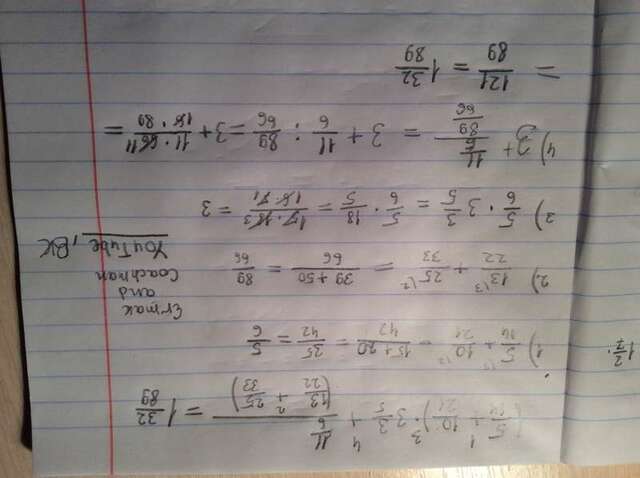 (5/14 + 10/21) · 3 3/5 + 11/6 / (13/22 + 25/33) = 1 32/89
1 2/7.
1) 5/14 + 10/21 = 15+20/42 = 35/42 = 5/6
2) 13\3/22 + 25\2/33 = 39+50/66 = 89/66
Ermak
and
Coachman
YouTube, BK
3) 5/6 · 3 3/5 = 5/6 · 18/5 = = 3
4) 3 + 11/6 / 89/66 = 3 + 11/6 : 89/66 = 3 + =
= 121/89 = 1 32/89